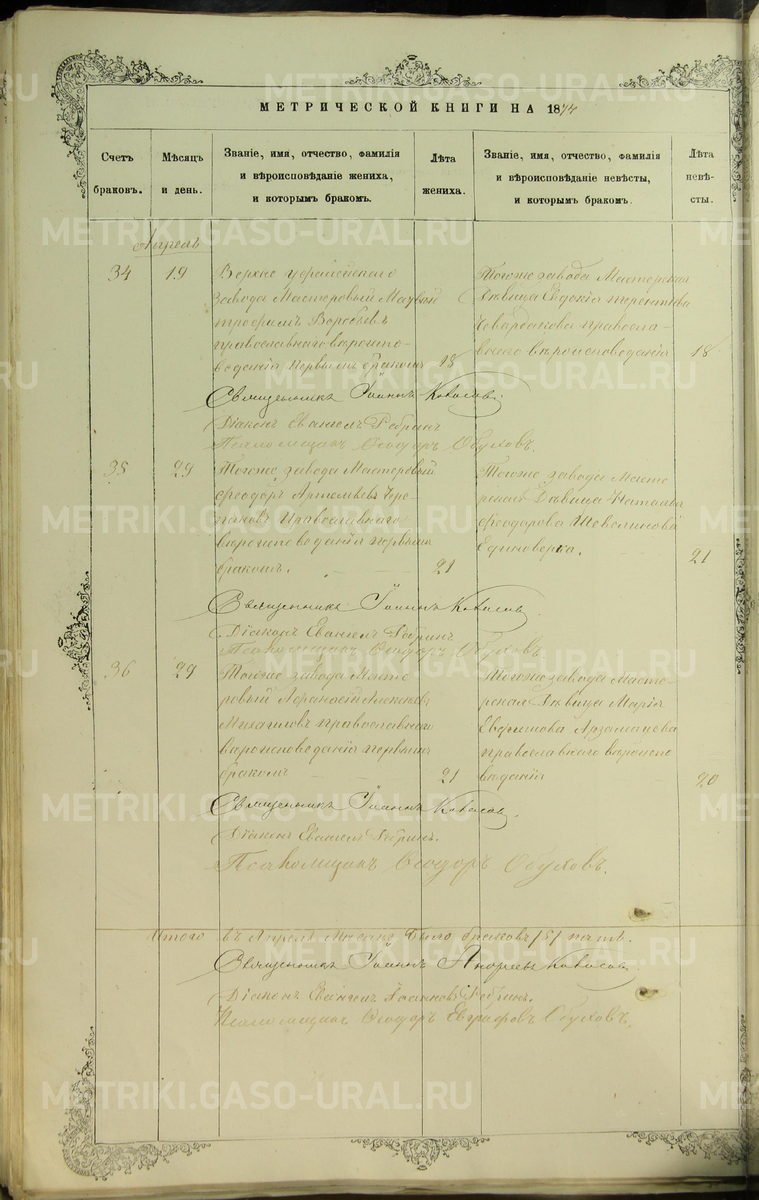 МЕТРИЧЕСКОЙ КНИГИ НА 1874
Счетъ браковъ.
Мѣсяцъ и день.
Званіе, имя, отчество, фамилія
и вѣроисповѣданіе жениха,
и которымъ бракомъ.
Лѣта жениха.
Званіе, имя, отчество, фамилія
и вѣроисповѣданіе невѣсты,
и которымъ бракомъ.
Лѣта невѣ-
сты.
Апрель
34
19
Верхне
Завода Мастеровый
Воробьевъ
православнаго вѣроиспо-
веданія первымъ бракомъ
18
Тогоже завода Мастерская
Дѣвица Евдокія Терентіева
правосла-
внаго вѣроисповеданія
18
Священникъ Іоаннъ
Діаконъ Евангелъ
Псаломщикъ Ѳеодоръ Обуховъ.
35
29
Тогоже завода Мастеровый
Ѳеодоръ Артемьевъ Чере-
пановъ Православнаго
вѣроисповеданія первымъ
бракомъ.
21
Тогоже завода Масте
рская Дѣвица Наталья
Ѳеодорова
Единоверка.
21
Священникъ Іоаннъ
Діаконъ Евангелъ
Псаломщикъ Ѳеодоръ Обуховъ
36
29
Тогоже завода Масте
ровый Афанасій
Михаиловъ православнаго
вѣроисповеданія первымъ
бракомъ
21
Тогоже завода Масте-
рская Дѣвица Марія
Ефимова Арзамасцева
православнаго вѣроиспо
вѣданія
20
Священникъ Іоаннъ
Діаконъ Евангелъ
Псаломщикъ Ѳеодоръ Обуховъ.
Итого въ Апрелѣ Месяцѣ было браковъ /5/ пять.
Священникъ Іоаннъ Андреевъ
Діаконъ Евангелъ Іоанновъ
Псаломщикъ Ѳеодоръ Евграфовъ Обуховъ.
METRIKI.GASO-URAL.RU